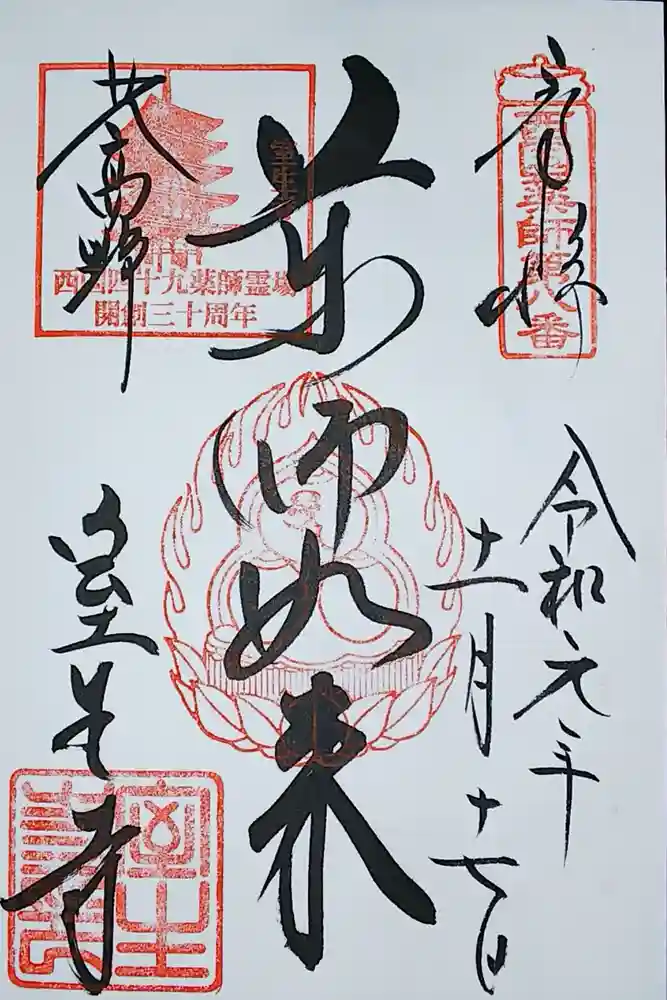 奉拝
西国薬師第八番
令和元年
十一月十七日
薬師如来
女高野
室生
西国四十九薬師霊場
開創三十周年
室生寺